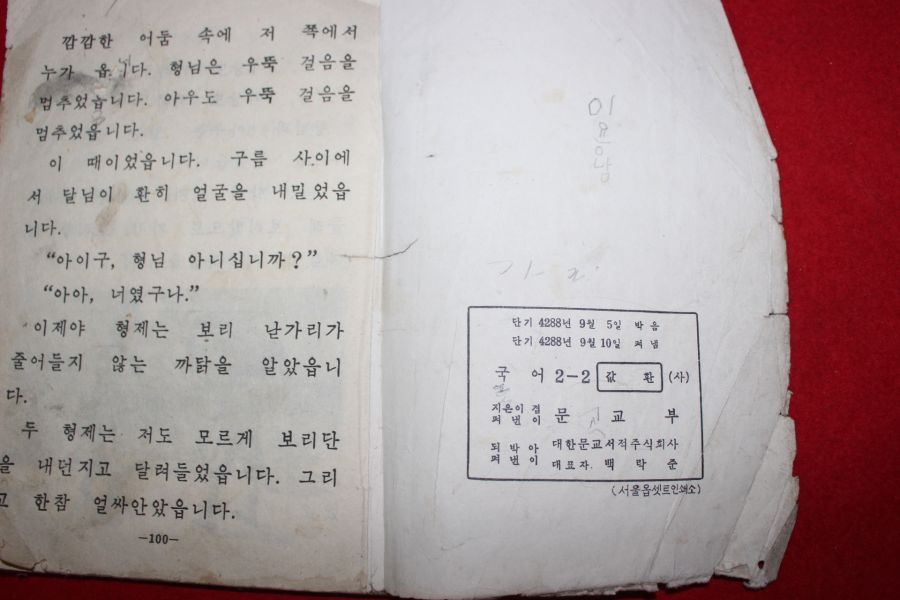 깜깜한 어둠 속에 저 쪽에서
누가 옵니다. 형님은 우뚝 걸음을
멈추었습니다. 아우도 우뚝 걸음을
멈추었읍니다.
이 때이었읍니다. 구름 사이에
서 달님이 환히 얼굴을 내밀었읍
니다.
“아이구, 형님 아니십니까?”
“아아, 너였구나.”
이제야 형제는 보리 난가리가
줄어들지 않는 까닭을 알았읍니
다.
두 형제는 저도 모르게 보리단
을 내던지고 달려들었읍니다. 그리
고 한참 얼싸안았읍니다.
—100—
이용남
단기 4288년 9월 5일 박음
단기 4288년 9월 10일 펴냄
국어 2-2 値 환 (사)
지은이 겸
펴낸이 문교부
되박아
펴낸이 대한문교서적주식회사
대표자 백락준
(서울옵셋트인쇄소)